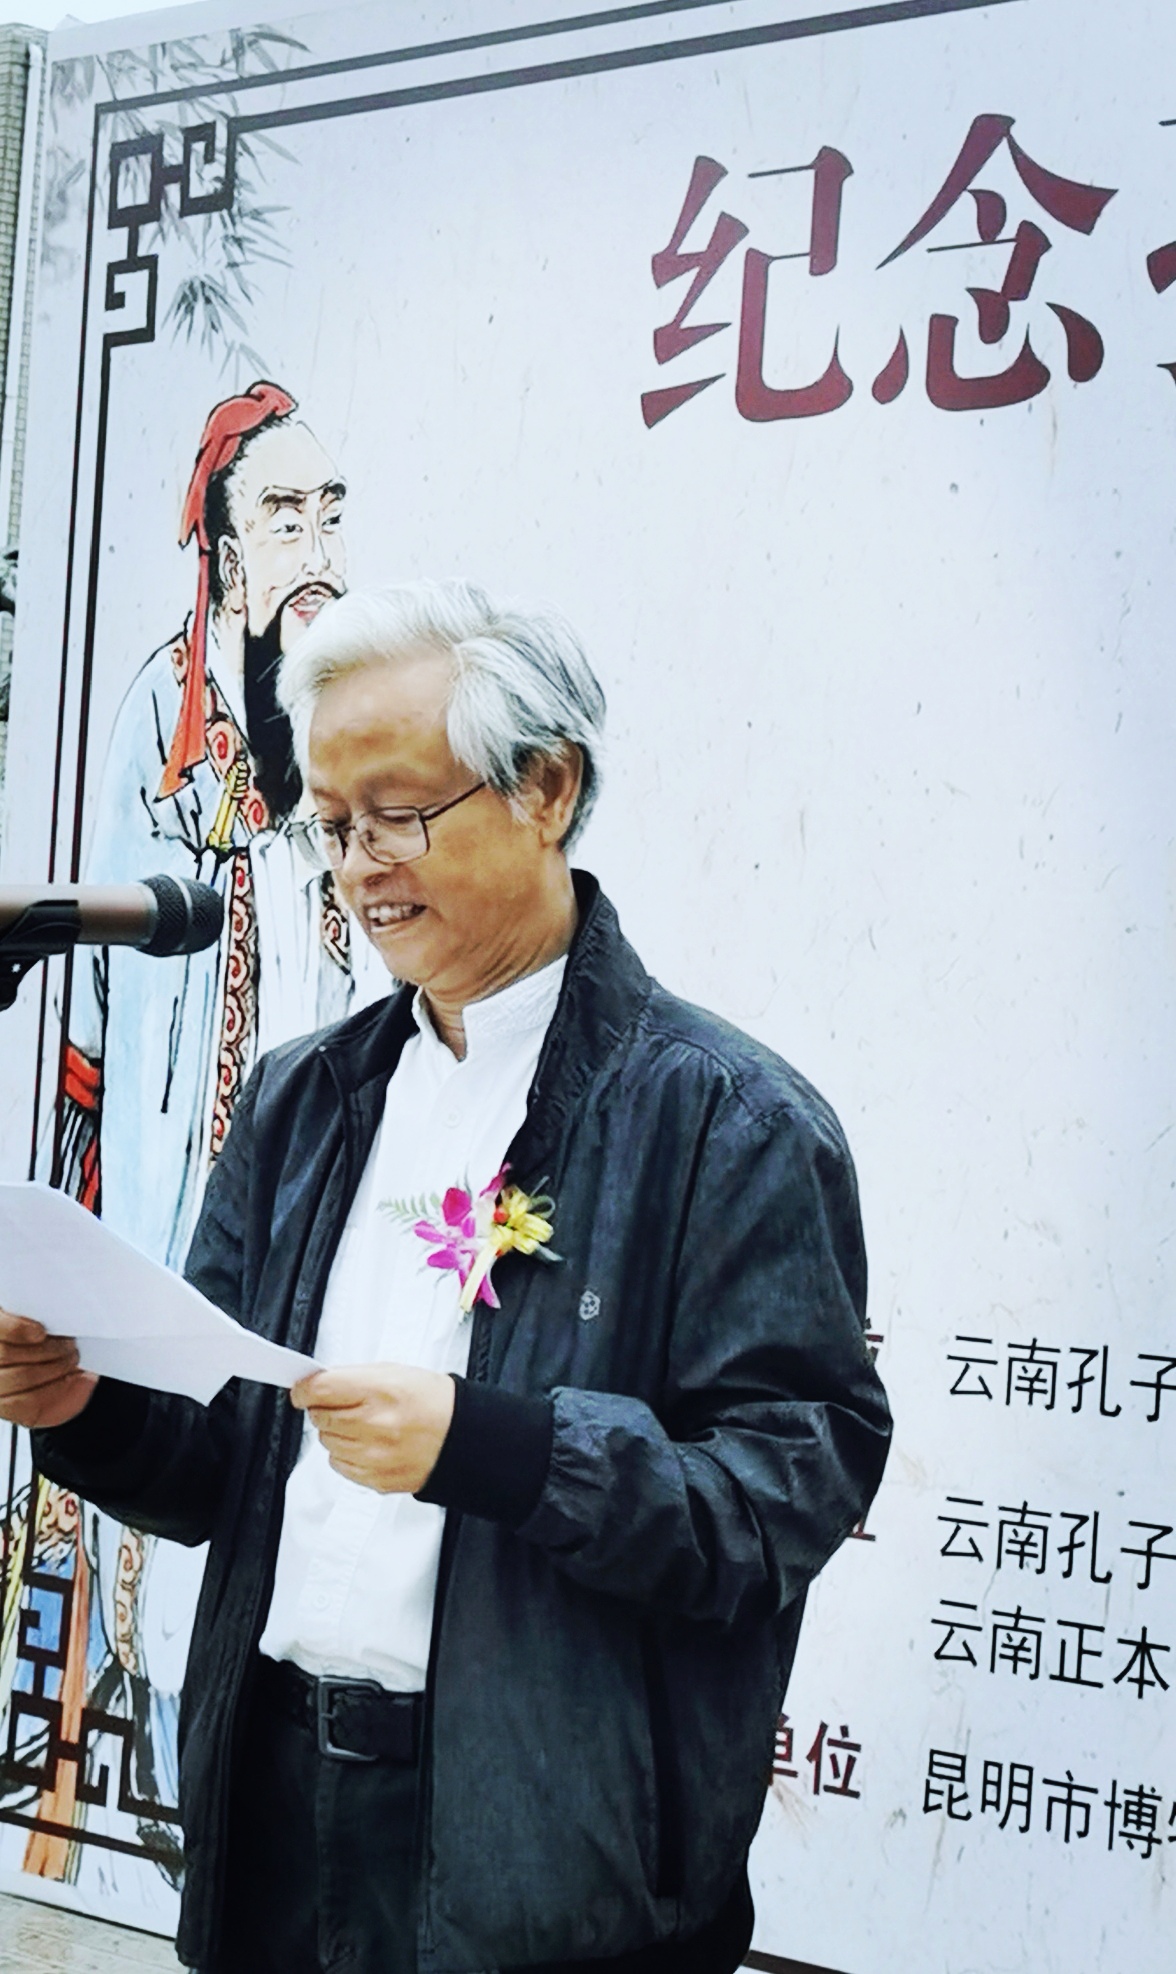 纪念
云南孔子
云南孔子
云南正本
单位
昆明市博